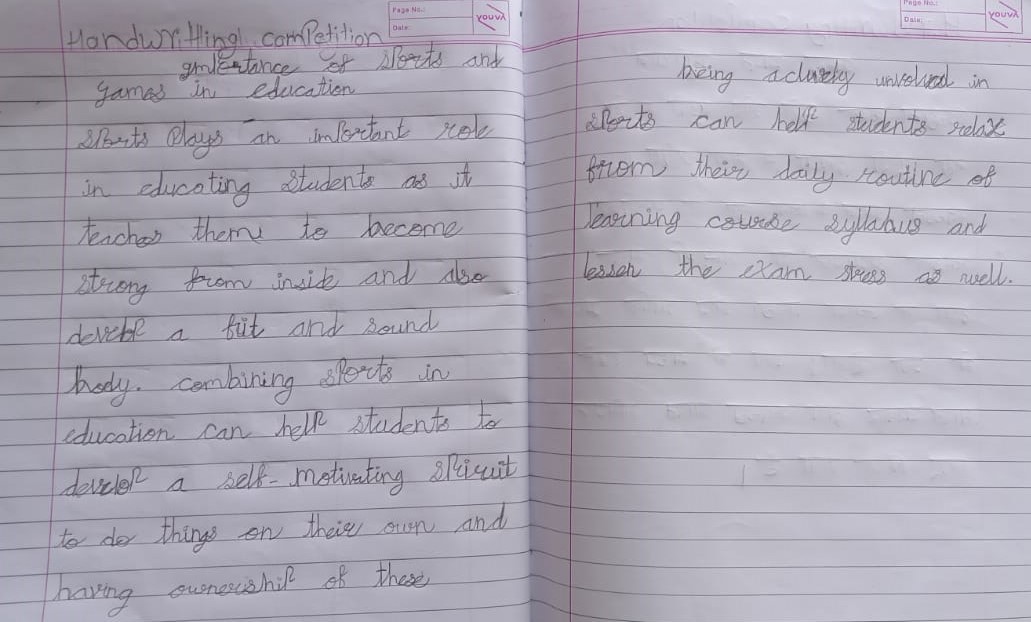 Page No.:
Date:
YOUVA
Handwritting competition
Importance of sports and
games in education
sports plays an important role
in educating students as it
teaches them to become
strong from inside and also
develop a fit and sound
body. combining sports in
education can help students to
develop a self-motivating spirit
to do things on their own and
having ownership of these
Page No.:
Date:
YOUVA
being actively unvolved in
sports can help students relax
from their daily routine of
learning course syllabus and
lessen the exam stress as well.